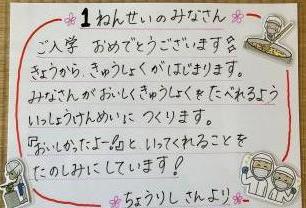 1ねんせいのみなさん
ご入学 おめでとうございます!!
きょうから、きゅうしょくがはじまります。
みなさんがおいしくきゅうしょくをたべれるよう
いっしょうけんめいに つくります。
『おいしかったよー!』と いってくれることを
たのしみにしています!
ちょうりしさんより